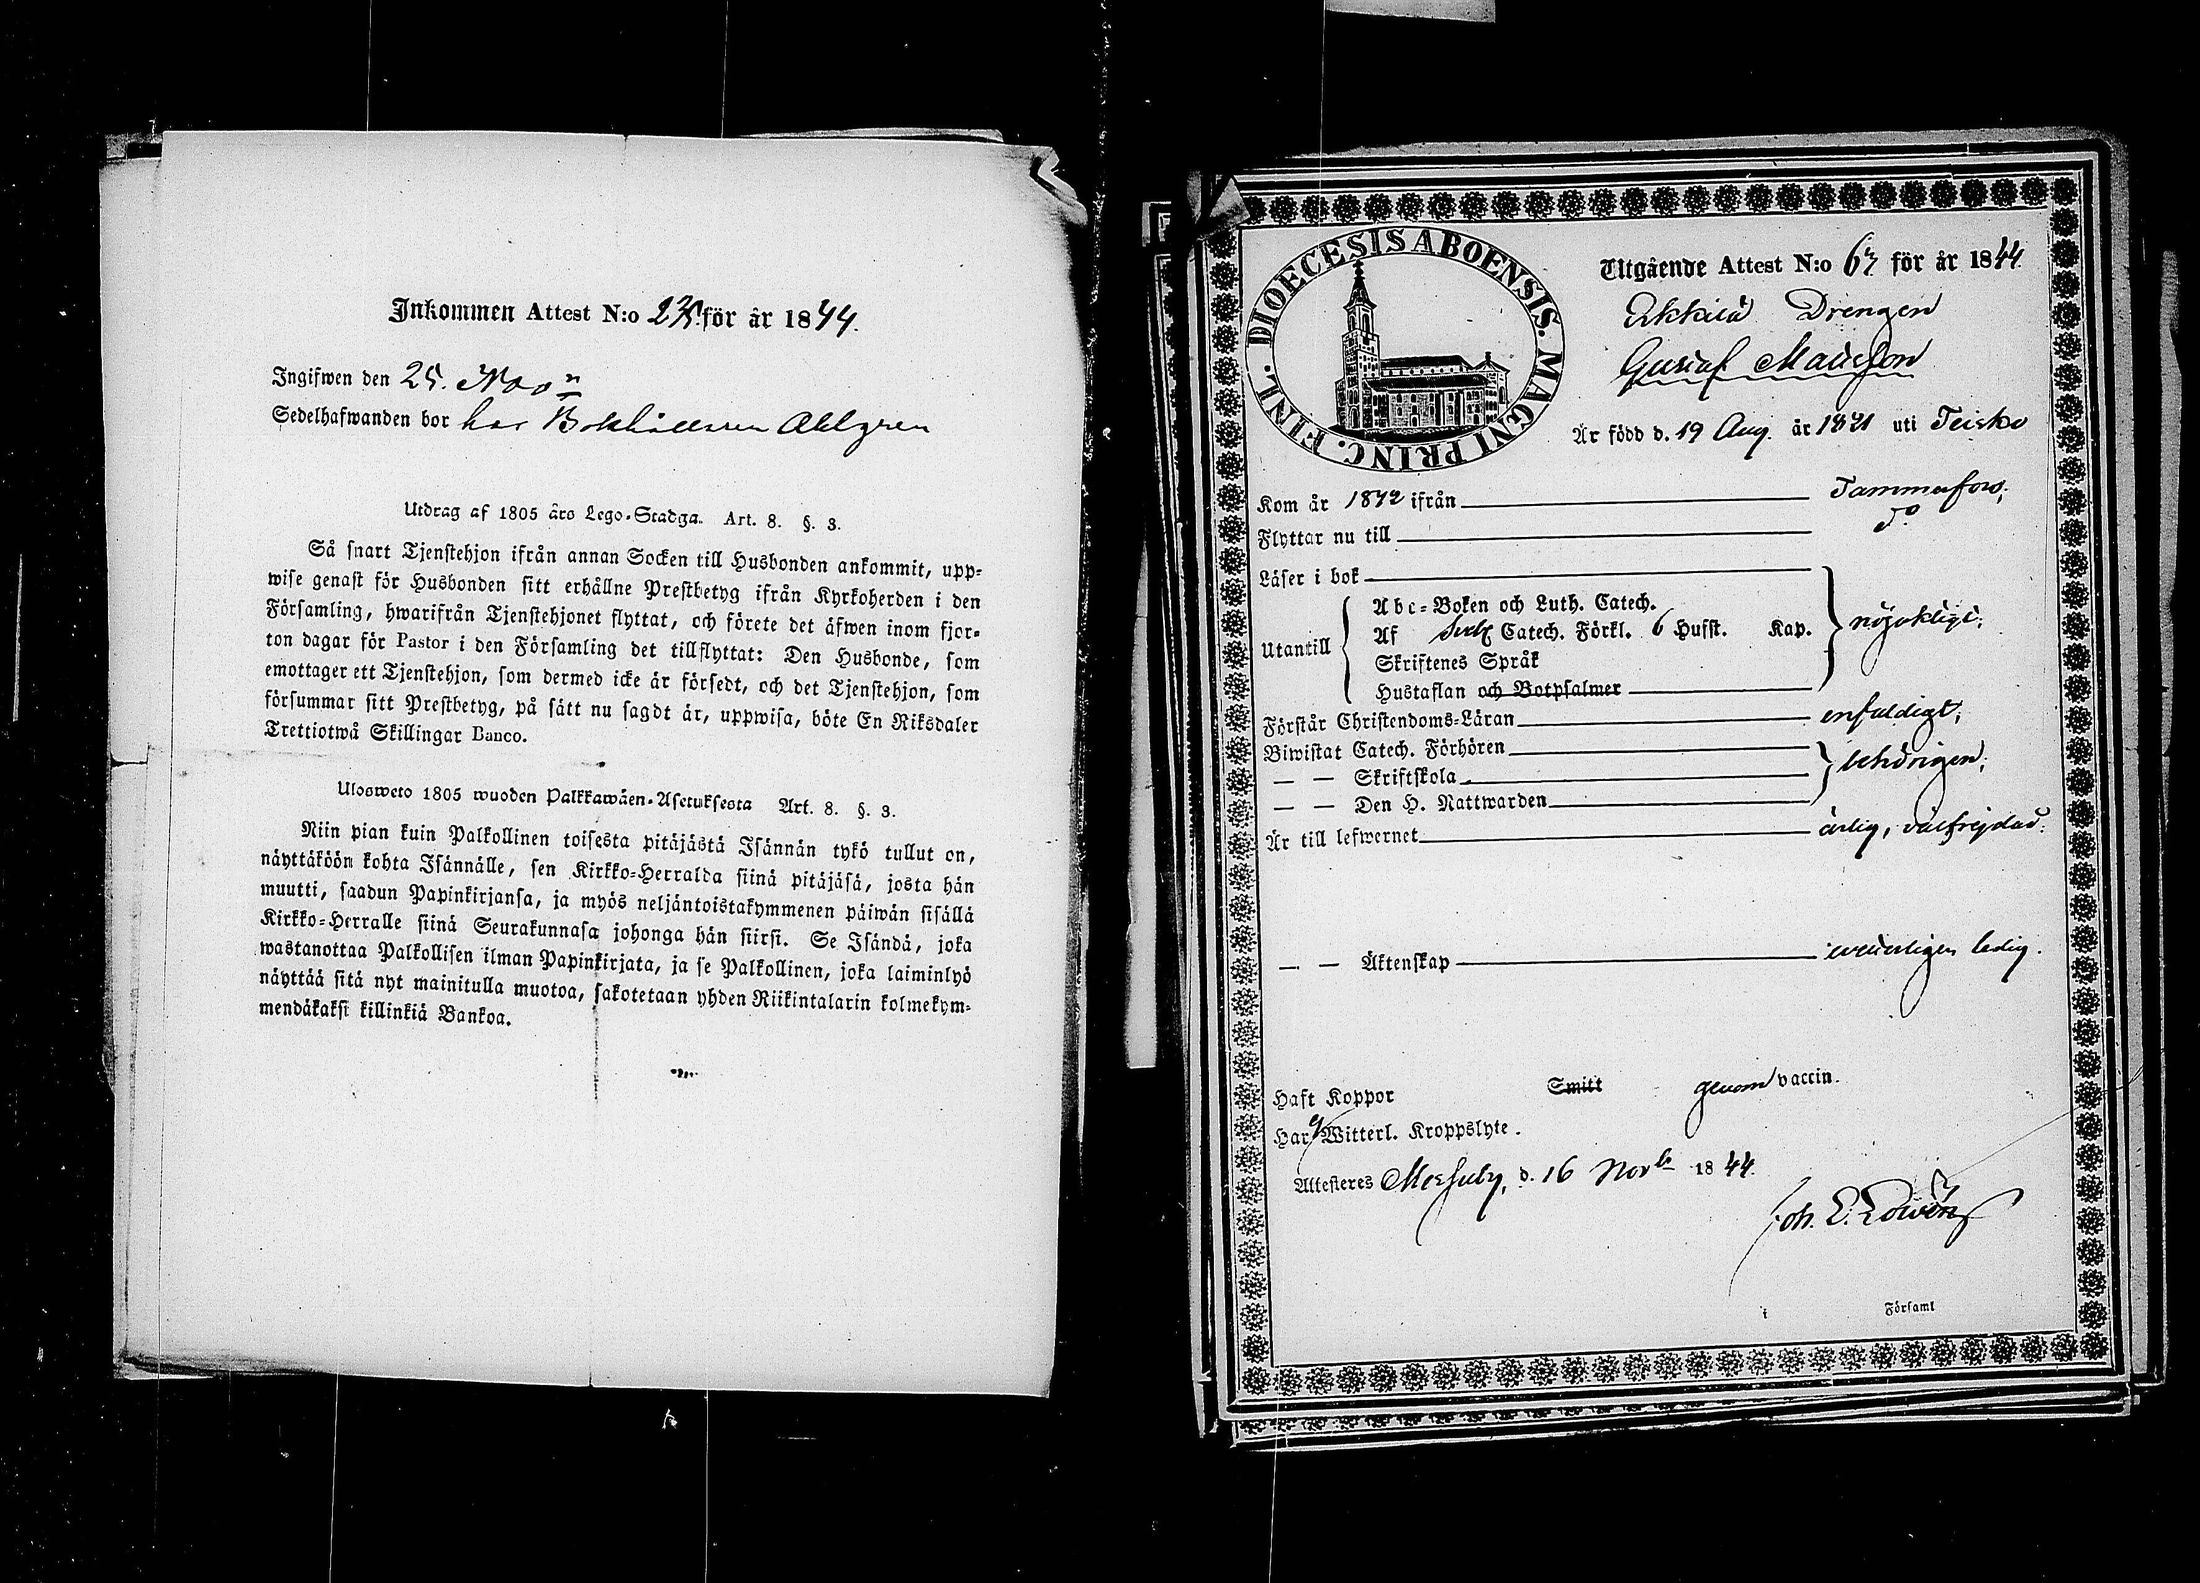 Inkommen Attest N:o för år 1844.
Ingifwen den 25. Nov
Sedelhafwanden bor hos Bokhållaren Ahlgren
Utdrag af 1805 års Lego-Stadga. Art. 8. §. 3.
Så snart Tjenstehjon ifrån annan Socken till Husbonden ankommit, upp-
wise genast för Husbonden sitt erhållne Prestbetyg ifrån Kyrkoherden i den
Församling, hwarifrån Tjenstehjonet flyttat, och förete det äfwen inom fjor-
ton dagar för Pastor i den Församling det tillflyttat: Den Husbonde, som
emottager ett Tjenstehjon, som dermed icke är försedt, och det Tjenstehjon, som
försummar sitt Prestbetyg, på sätt nu sagdt är, uppwisa, böte En Riksdaler
Trettiotwå Skillingar Banco.
Ulosweto 1805 wuoden Palkkawäen-Asetuksesta Art. 8. §. 3.
Niin pian kuin Palkollinen toisesta pitäjästä Isännän tykö tullut on,
näyttäköön kohta Isännälle, sen Kirkko-Herralda siinä pitäjäsä, josta hän
muutti, saadun Papinkirjansa, ja myös neljäntoistakymmenen päiwän sisällä
Kirkko-Herralle siinä Seurakunnasa johonga hän siirsi. Se Isändä, joka
wastanottaa Palkollisen ilman Papinkirjata, ja se Palkollinen, joka laiminlyö
näyttää sitä nyt mainitulla muotoa, sakotetaan yhden Riikintalarin kolmekym-
mendäkaksi killinkiä Bankoa.
DIOECESIS ABOENSIS. MAGNI PRINC. FINL.
Utgående Attest N:o 67 för år 1844.
Drengen
Gustaf
Är född d. 19 Aug. år 1821 uti Teisko
Kom år 1842 ifrån Tammerfors,
Flyttar nu till d:o
Läser i bok
Utantill
Abc-Boken och Luth. Catech.
Af Catech. Förkl. 6 Hufst. Kap. nöjaktigt;
Skriftenes Språk
Hustaflan och Botpsalmer
Förstår Christendoms-Läran enfaldigt;
Biwistat Catech. Förhören
— — Skriftskola behörigen;
— — Den H. Nattwarden
Är till lefwernet ärlig, välfrejdad:
— — Äktenskap veterligen ledig.
Haft Koppor Smitt genom vaccin.
Har ej Witterl. Kroppslyte.
Attesteres Messuby, d. 16 Novb 1844.
Joh. E.
i Församl